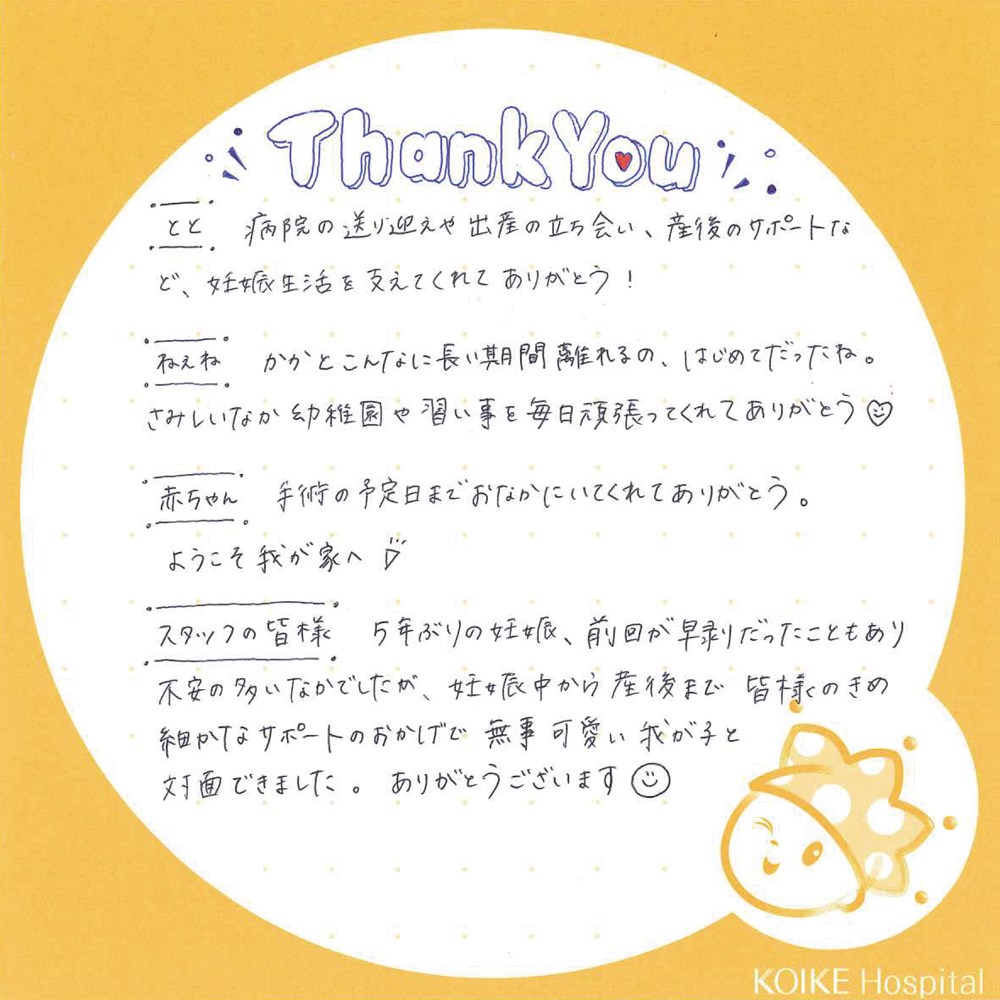 Thank You
とと 病院の送り迎えや出産の立ち会い、産後のサポートな
ど、妊娠生活を支えてくれてありがとう！
ねぇね かかとこんなに長い期間離れるの、はじめてだったね。
さみしいなか幼稚園や習い事を毎日頑張ってくれてありがとう
赤ちゃん 手術の予定日までおなかにいてくれてありがとう。
ようこそ我が家へ
スタッフの皆様 5年ぶりの妊娠、前回が早剥だったこともあり
不安の多いなかでしたが、妊娠中から産後まで皆様のきめ
細かなサポートのおかげで無事可愛い我が子と
対面できました。ありがとうございます
KOIKE Hospital